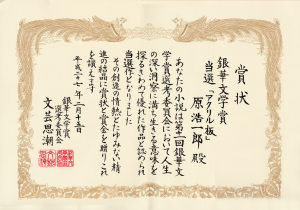 賞状
銀華文学賞
当選「アクリル板」
原浩一郎殿
あなたの小説は第一回銀華文
学賞選考委員会において人生
の深い洞察に満ち生きる意味を
探るきわめて優れた作品と認められ
当選作となりました
その創造の情熱とたゆみない精
進の結晶に賞状と賞金を贈りこれ
を讃えます
平成二十七年二月十五日
銀華文学賞
選考委員会
文芸思潮